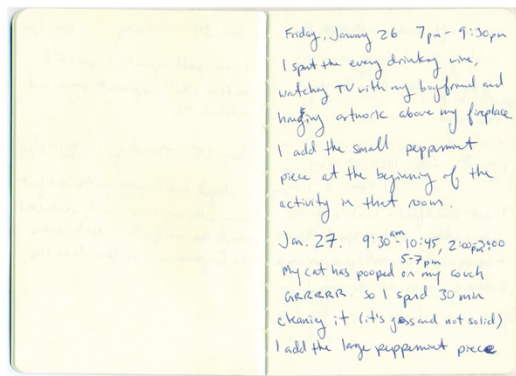 Friday, January 26 7pm - 9:30pm
I spent the every drinking wine,
watching TV with my boyfriend and
hanging artwork above my fireplace
I add the small peppermint
piece at the beginning of the
activity in that room.
Jan. 27. 9:30am - 10:45,
5-7pm
My cat has pooped on my couch
GRRRRR. so I spend 30 min
cleaning it (it's and not solid)
I add the large peppermint piece